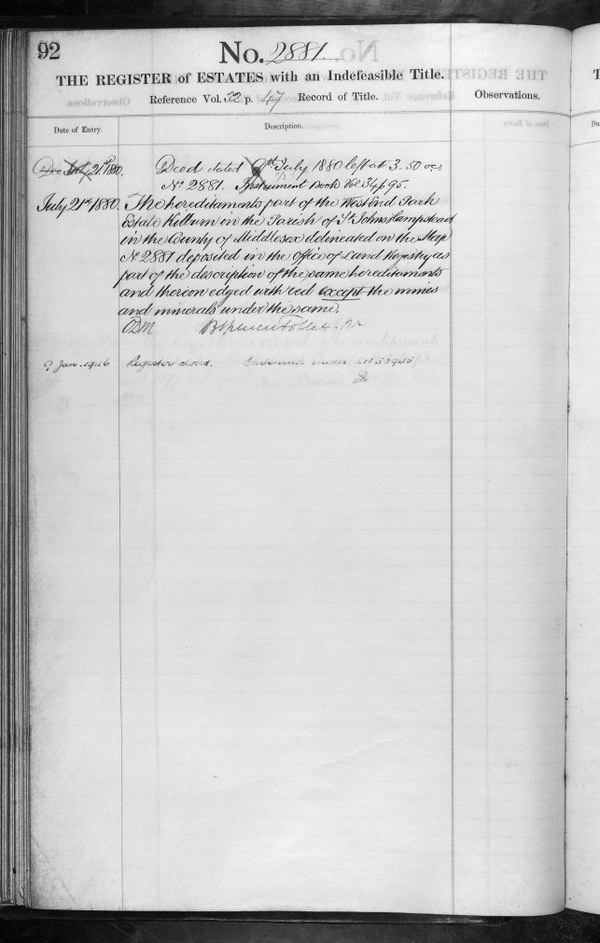 92
No. 2881
THE REGISTER of ESTATES with an Indefeasible Title.
Reference Vol. 32 p. 47 Record of Title.
Observations.
Date of Entry.
Description.
July 21st 1880.
Deed dated 9th July 1880 left at 3.50
No 2881. Instrument Book Vol 34 p 95.
July 21st 1880.
The hereditaments part of the West End Park
Estate Kilburn in the Parish of St Johns Hampstead
in the County of Middlesex delineated on the Map
No 2881 deposited in the Office of Land Registry as
part of the description of the same hereditaments
and thereon edged with red except the mines
and minerals under the same.
9 Jan. 1946
Register closed. under